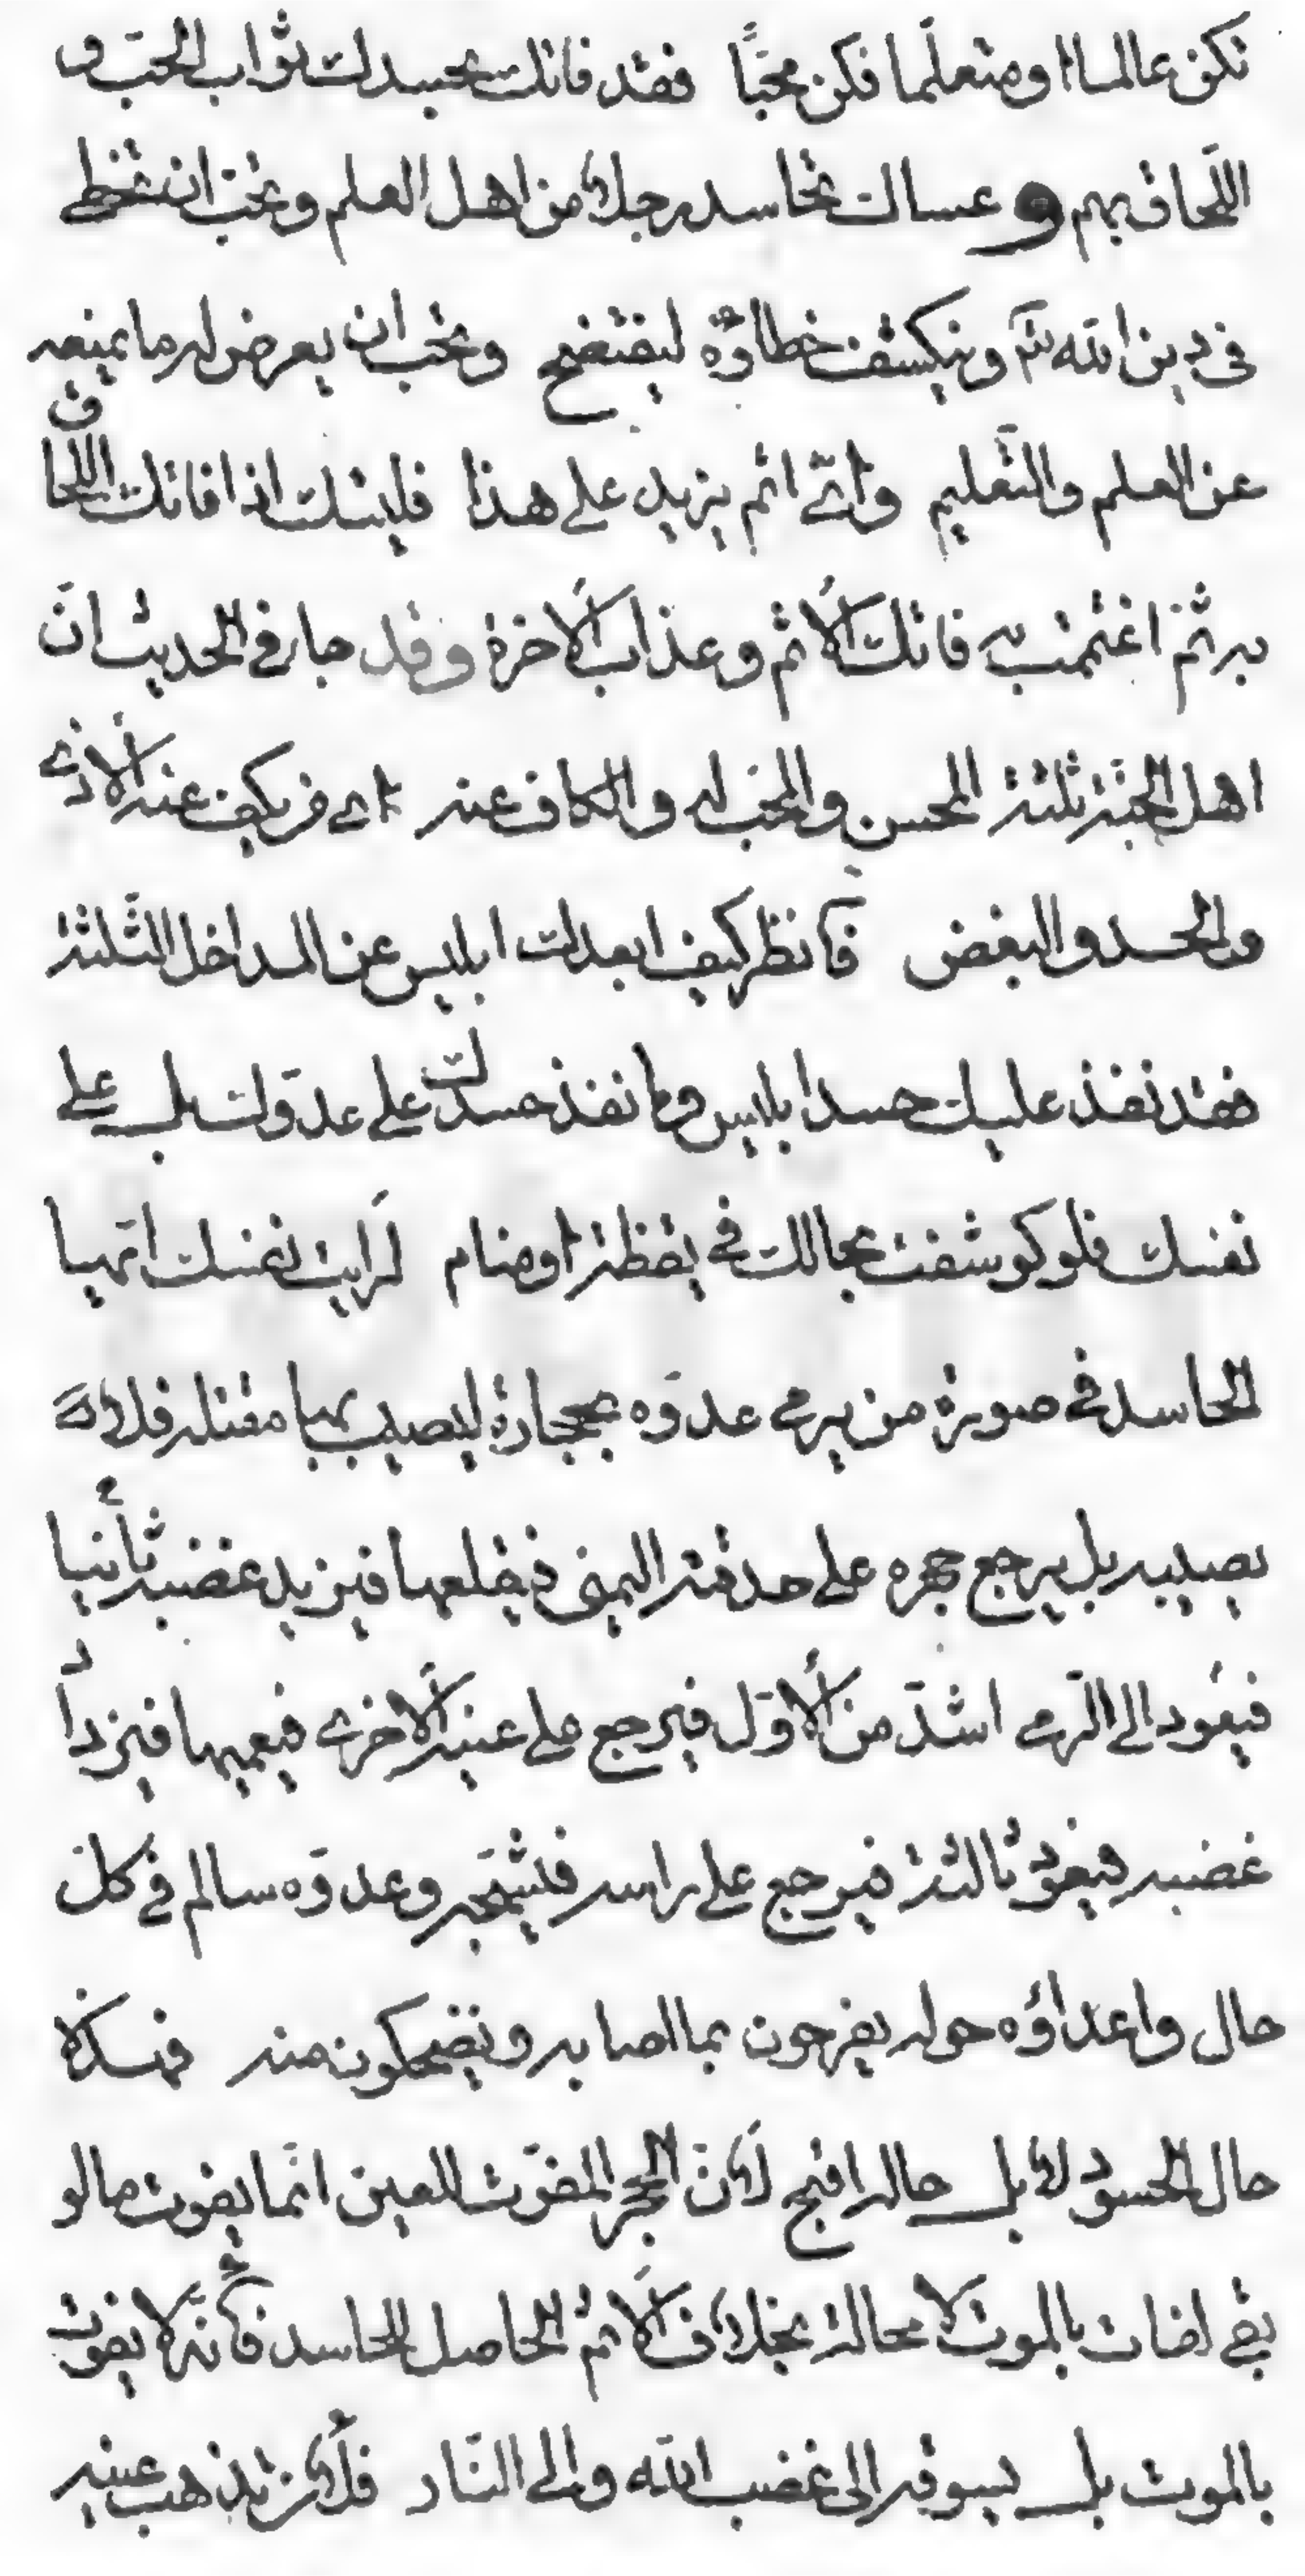 تكن عالما او متعلّما فكن محبّا فقد فاتك بحسدك ثواب الحبّ و
اللّحاق بهم و عساك تحاسد رجلا من اهل العلم و تحبّ ان تخطئ
فى دين الله تعالى و ينكشف خطاؤه ليفتضح و تحب ان يعرض له ما يمنعه
عن العلم و التّعليم و اىّ اثم يزيد على هذا فليتك اذا فاتك اللحاق
به ثمّ اغتممت به فاتك الاثم و عذاب الاخرة و قد جاء فى الحديث انّ
اهل الجنّة ثلثة المحسن و المحبّ له و الكاف عنه اى من يكف عنه الاذى
و الحسد و البغض فانظر كيف ابعدك ابليس عن المداخل الثّلثة
فقد نفذ عليك حسد ابليس و ما نفذ حسدك على عدوّك بل على
نفسك فلو كوشفت بحالك فى يقظة او منام لرايت نفسك ايّها
الحاسد فى صورة من يرمى عدوّه بحجارة ليصيب بها مقتله فلا
يصيبه بل يرجع حجره على حدقته اليمنى فيقلعها فيزيد غضبه ثانيا
فيعود الى الرّمى اشدّ من الاوّل فيرجع على عينه الاخرى فيعميها فيزداد
غضبه فيعود ثالثة فيرجع على راسه فيشجّه و عدوّه سالم فى كلّ
حال و اعداؤه حوله يفرحون بما اصابه و يضحكون منه فهكذا
حال الحسود لا بل حاله اقبح لانّ الحجر المفوّت للعين انّما يفوت ما لو
بقى لفات بالموت لا محالة بخلاف الاثم الحاصل للحاسد فانّه لا يفوت
بالموت بل يسوقه الى غضب الله و الى النّار فلان تذهب عينه